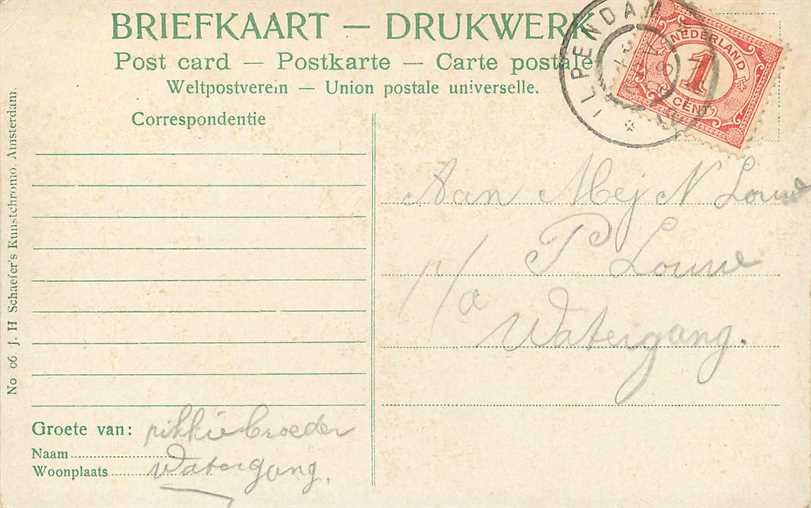 BRIEFKAART — DRUKWERK
Post card — Postkarte — Carte postale
Weltpostverein — Union postale universelle.
Correspondentie
ILPENDAM
NEDERLAND
1
CENT
Aan Mej N Louwe
P Louwe
p/a
Watergang.
Groete van: broeder
Naam
Woonplaats Watergang.
No 06 J. H Schaefer's Kunstchromo Amsterdam.